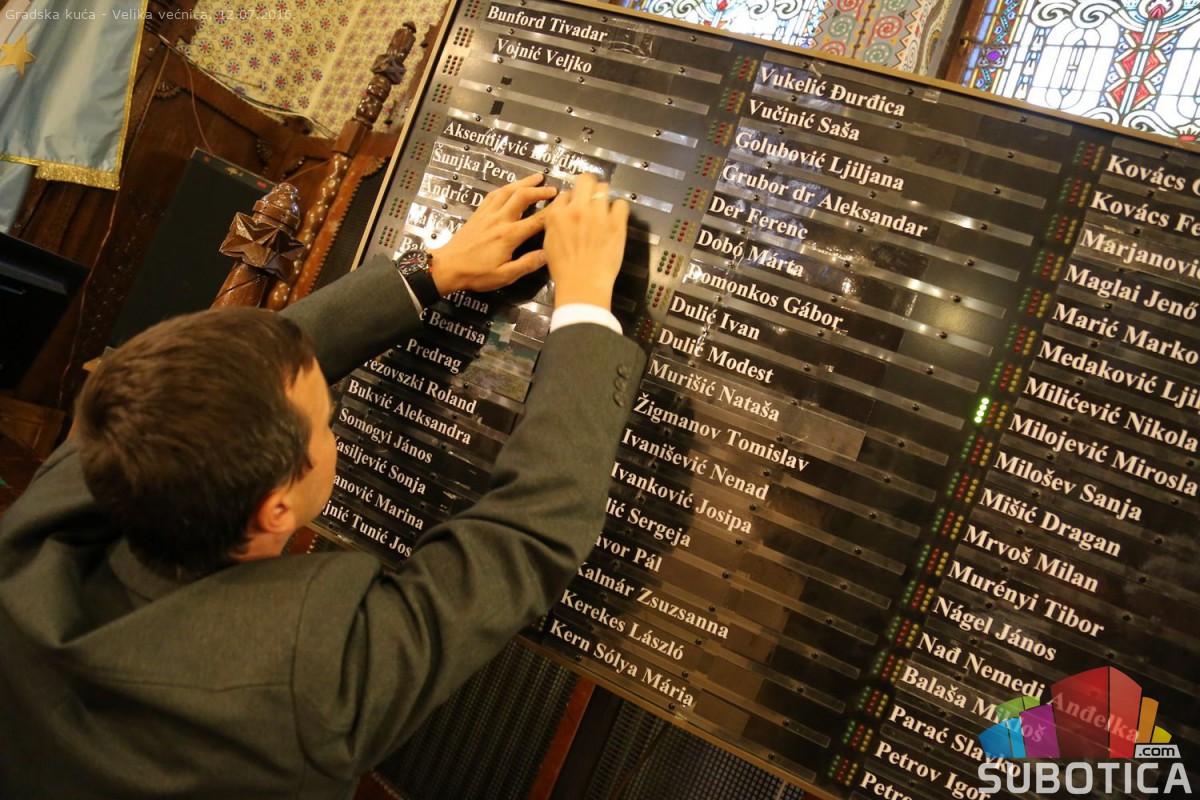 Gradska kuća - Velika većnica, 12.07.2016.
Bunford Tivadar
Vojnić Veljko
Aksentijević
Šunjka Pero
Andrić
Beatrisa
Predrag
Roland
Bukvić Aleksandra
Somogyi János
Sonja
Marina
Tunić
Vukelić Đurđica
Vučinić Saša
Golubović Ljiljana
Grubor dr Aleksandar
Der Ferenc
Dobó Márta
Domonkos Gábor
Dulić Ivan
Dulić Modest
Murišić Nataša
Žigmanov Tomislav
Ivanišević Nenad
Ivanković Josipa
Sergeja
Pál
Kalmár Zsuzsanna
Kerekes László
Kern Sólya Mária
Kovács
Kovács
Maglai Jenő
Marić Marko
Medaković
Milićević Nikola
Milojević
Milošev Sanja
Mišić Dragan
Mrvoš Milan
Murényi Tibor
Nágel János
Nađ Nemedi
Anđelka
Balaša
Parać
Petrov Igor
SUBOTICA
.com